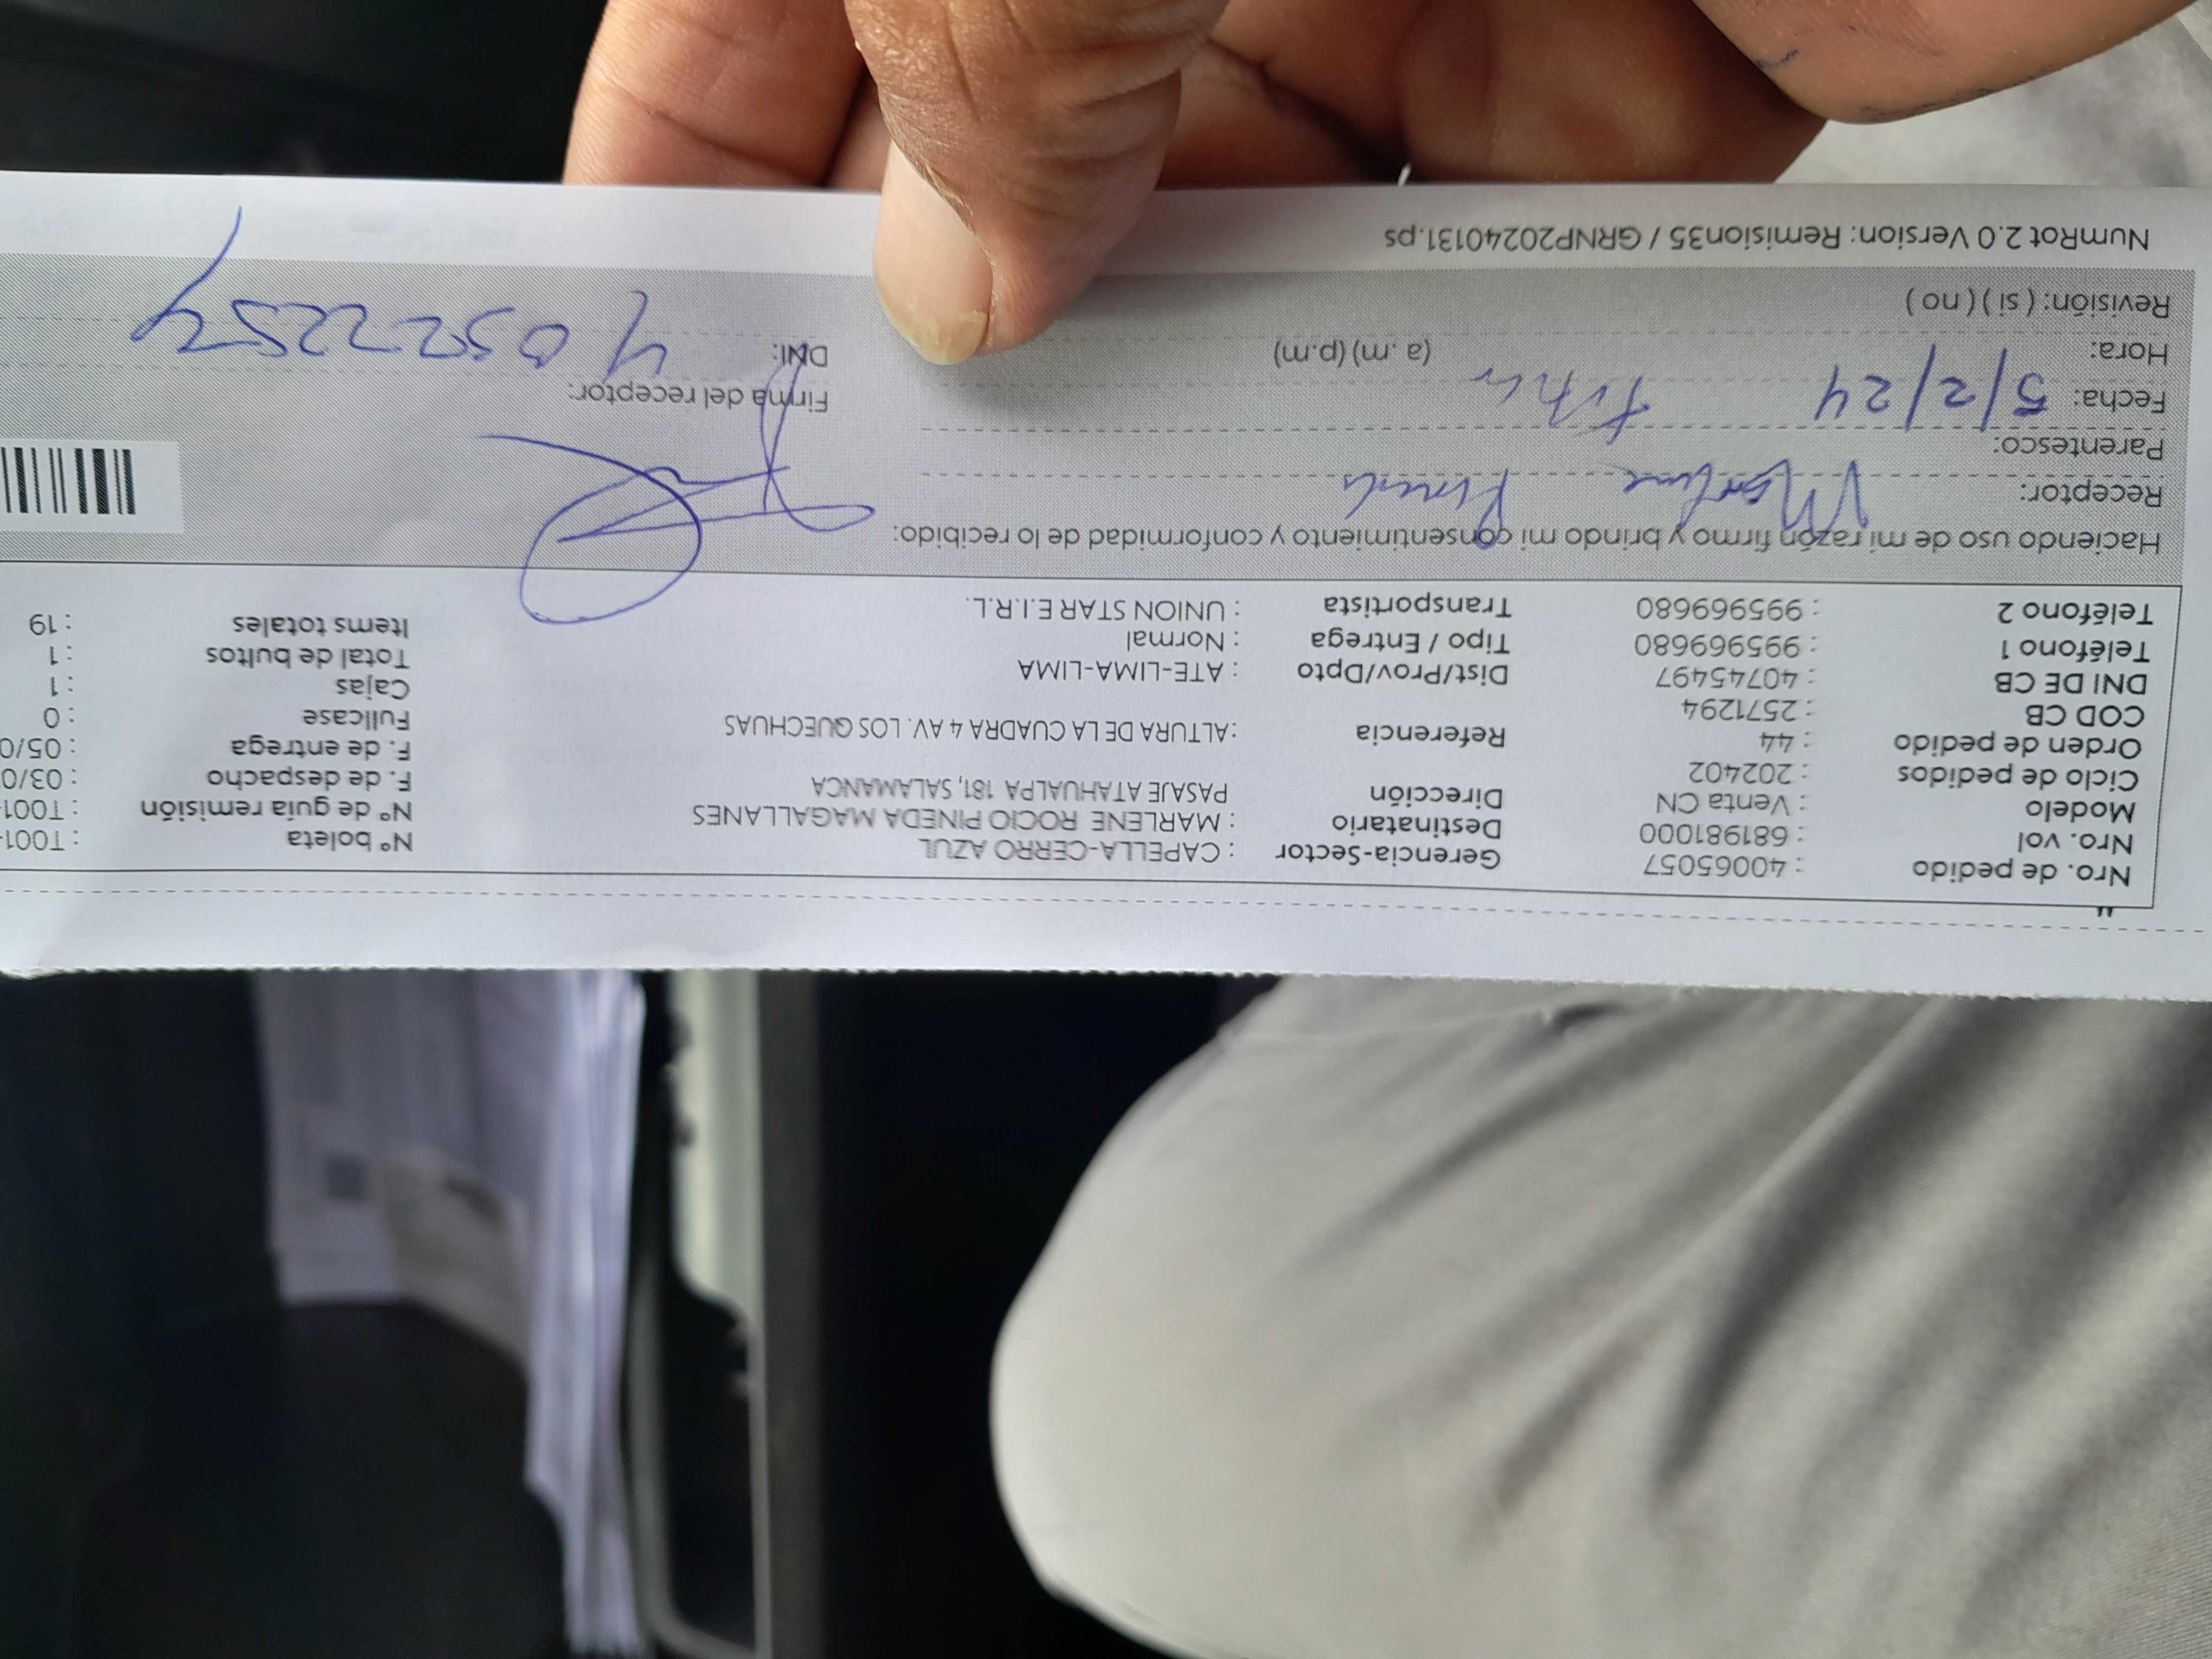 Nro. de pedido : 40065057 Gerencia-Sector : CAPELLA-CERRO AZUL N° boleta : T001-
Nro. vol : 681981000 Destinatario : MARLENE ROCIO PINEDA MAGALLANES N° de guía remisión : T001-
Modelo : Venta CN Dirección PASAJE ATAHUALPA 181, SALAMANCA F. de despacho : 03/0
Ciclo de pedidos : 202402 F. de entrega : 05/0
Orden de pedido : 44 Referencia : ALTURA DE LA CUADRA 4 AV. LOS QUECHUAS Fullcase : 0
COD CB : 2571294 Cajas : 1
DNI DE CB : 40745497 Dist/Prov/Dpto : ATE-LIMA-LIMA Total de bultos : 1
Teléfono 1 : 995969680 Tipo / Entrega : Normal Items totales : 19
Teléfono 2 : 995969680 Transportista : UNION STAR E.I.R.L.
Haciendo uso de mi razón firmo y brindo mi consentimiento y conformidad de lo recibido:
Receptor: Pineda
Parentesco:
Fecha: 5/2/24 Firma del receptor:
Hora: (a.m) (p.m) DNI:
Revisión: ( si ) ( no )
NumRot 2.0 Version: Remision35 / GRNP20240131.ps